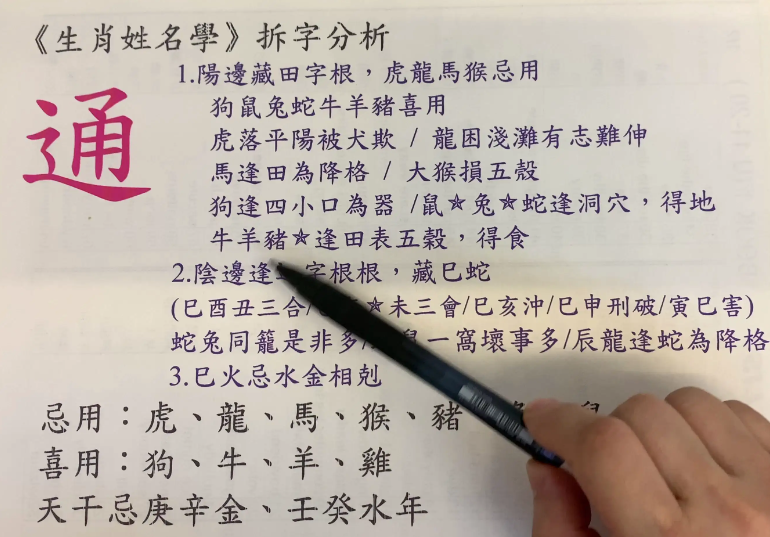 《生肖姓名學》拆字分析
通
1.陽邊藏田字根,虎龍馬猴忌用
狗鼠兔蛇牛羊豬喜用
虎落平陽被犬欺 / 龍困淺灘有志難伸
馬逢田為降格 / 大猴損五殼
狗逢四小口為器 /鼠★兔★蛇逢洞穴,得地
牛羊豬★逢田表五穀,得食
2.陰邊逢 字根根,藏巳蛇
(巳酉丑三合/ ★未三會/巳亥沖/巳申刑破/寅巳害)
蛇兔同籠是非多/ 一窩壞事多/辰龍逢蛇為降格
3.巳火忌水金相剋
忌用:虎、龍、馬、猴、豬
喜用:狗、牛、羊、雞
天干忌庚辛金、壬癸水年